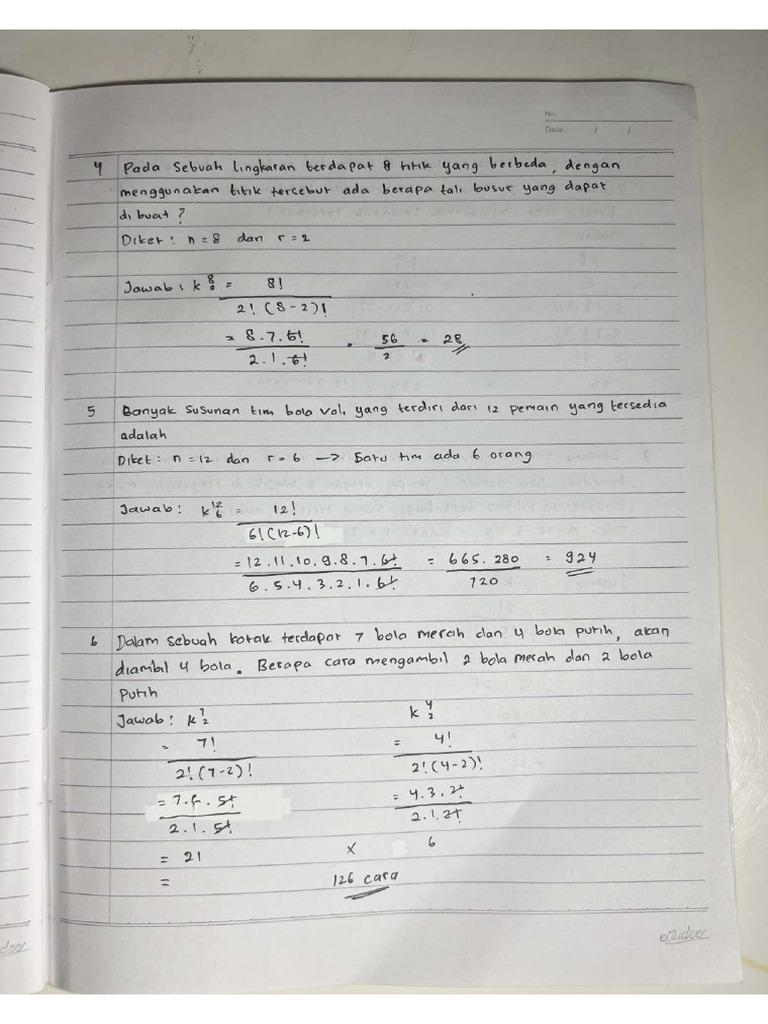 No.
Date. / /
4 Pada sebuah lingkaran terdapat 8 titik yang berbeda, dengan
menggunakan titik tercebut ada berapa tali busur yang dapat
di buat ?
Diket : n = 8 dan r = 2
Jawab : k 8 2 = 8!
2! (8-2)!
= 8.7.6! = 56 = 28
2.1.6! 2
5 Banyak susunan tim bola voli yang terdiri dari 12 pemain yang tersedia
adalah
Diket : n = 12 dan r = 6 → Satu tim ada 6 orang
Jawab : k 12 6 = 12!
6!(12-6)!
= 12.11.10.9.8.7.6! = 665.280 = 924
6.5.4.3.2.1.6! 720
6 Dalam sebuah kotak terdapat 7 bola merah dan 4 bola putih, akan
diambil 4 bola. Berapa cara mengambil 2 bola merah dan 2 bola
Putih
Jawab : k 7 2 k 4 2
= 7! = 4!
2!(7-2)! 2!(4-2)!
= 7.6.5! = 4.3.2!
2.1.5! 2.1.2!
= 21 x 6
= 126 cara
estudee